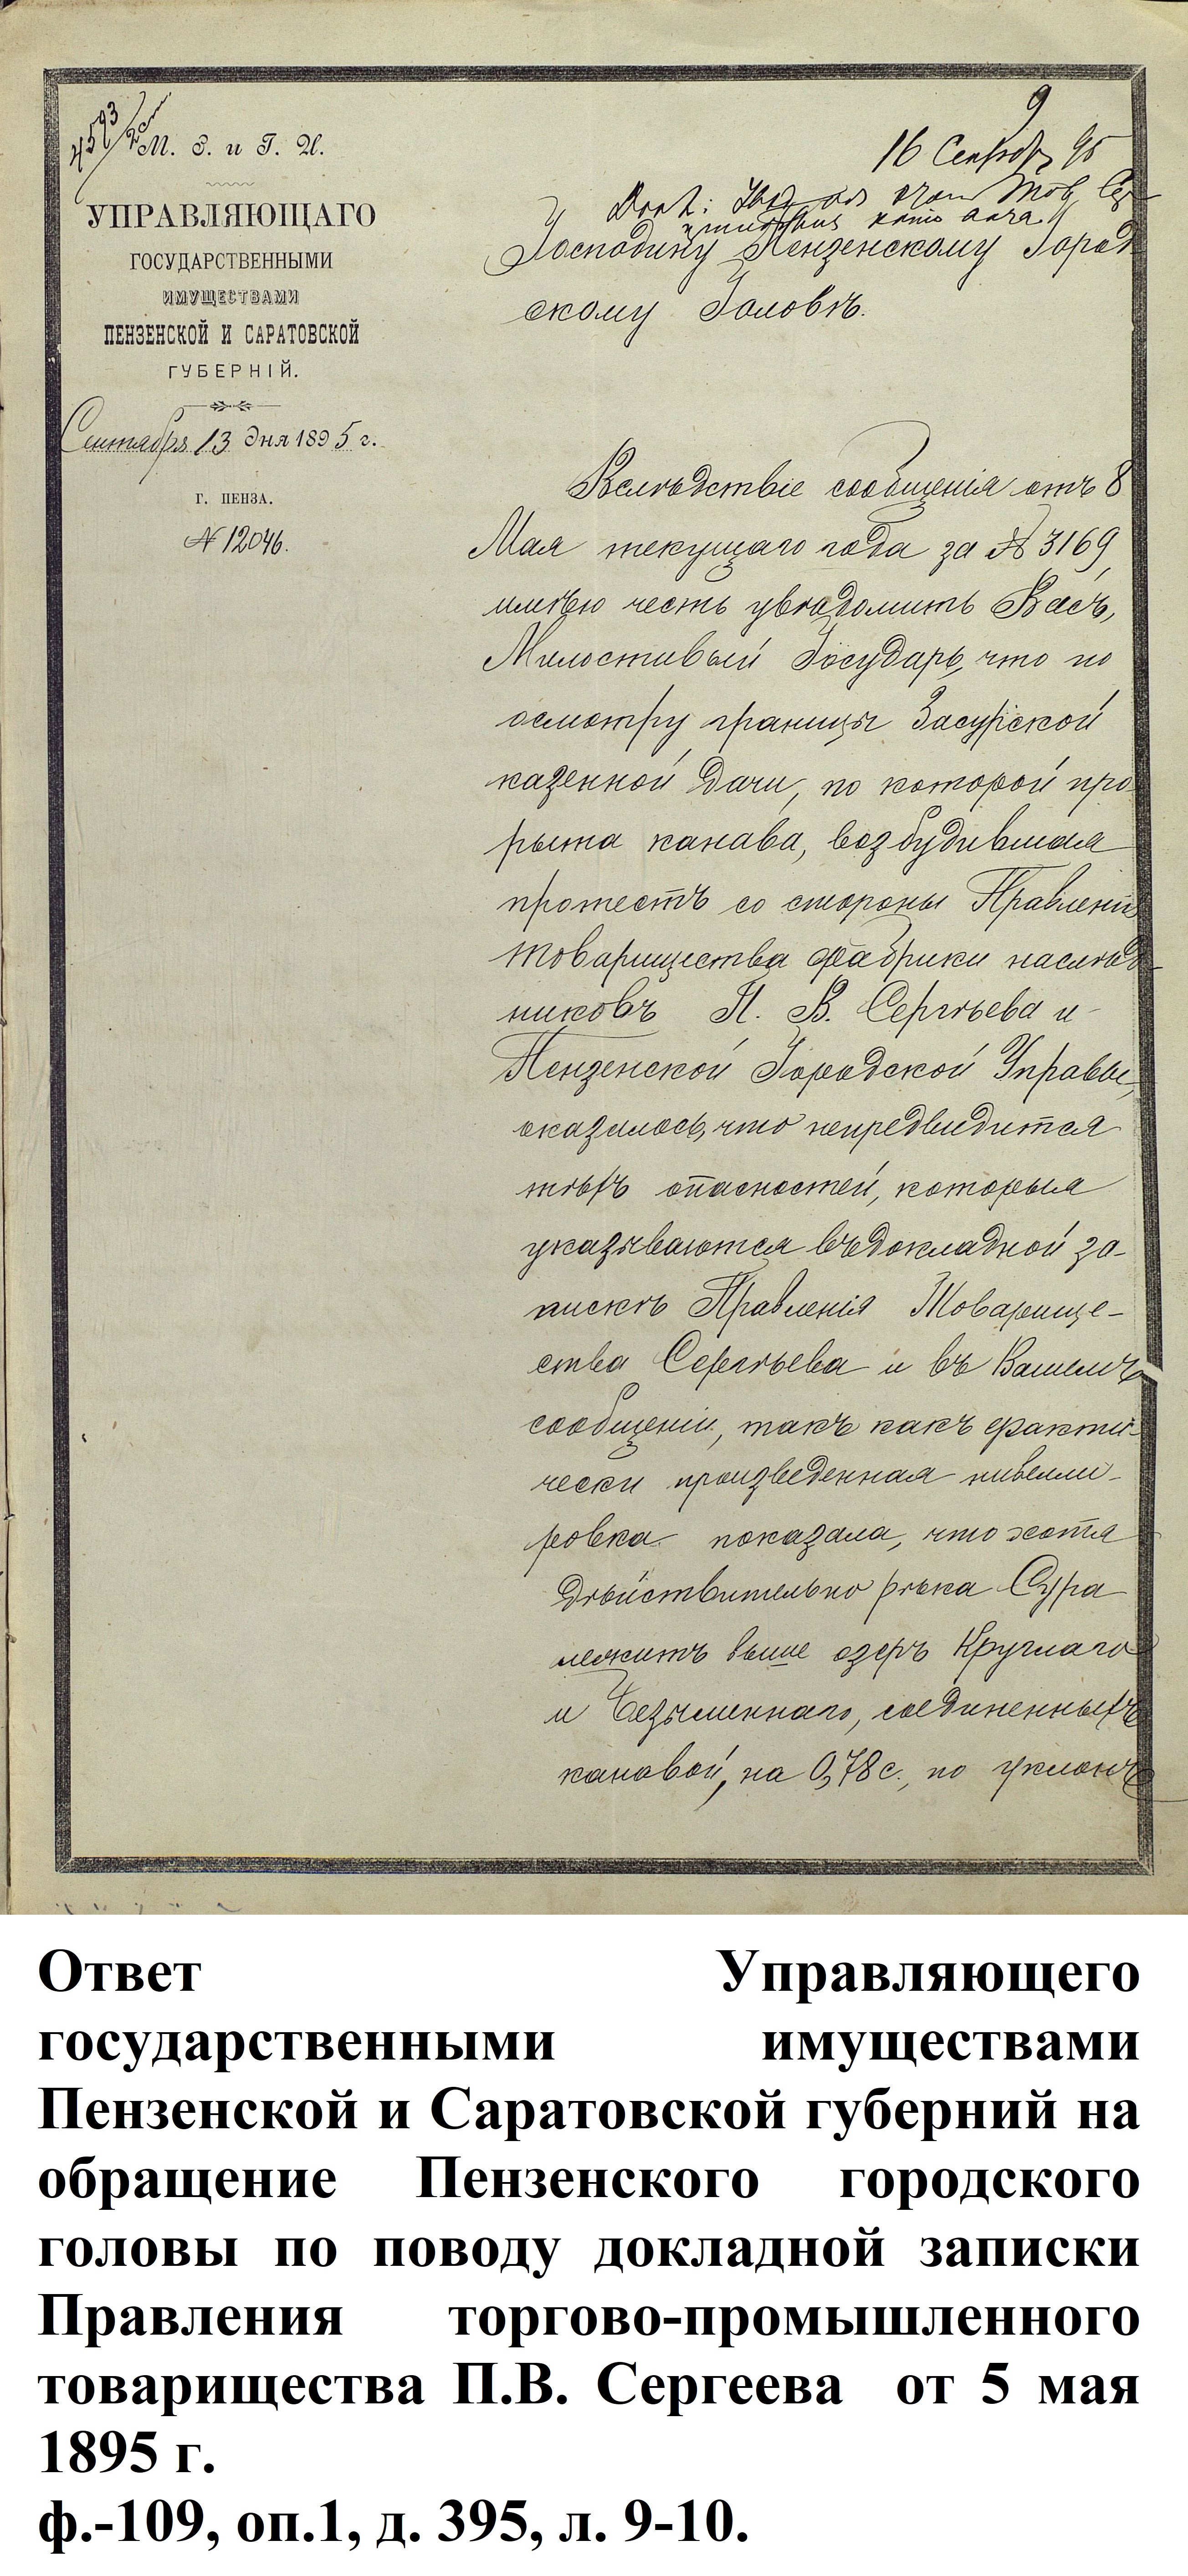 М. З. и Г. И.
УПРАВЛЯЮЩАГО
ГОСУДАРСТВЕННЫМИ
ИМУЩЕСТВАМИ
ПЕНЗЕНСКОЙ И САРАТОВСКОЙ
ГУБЕРНІЙ.
Сентября 13 дня 1895 г.
Г. ПЕНЗА.
№ 12046.
9
16 Сентяб 95
Господину Пензенскому Город
скому Головѣ.
Вслѣдствіе сообщенія отъ 8
Мая текущаго года за № 3169,
имѣю честь увѣдомить Васъ,
Милостивый Государь, что по
осмотру границы Засурской
казенной дачи, по которой про
рыта канава, возбудившая
протестъ со стороны Правленія
товарищества фабрики наслѣд-
никовъ П. В. Сергѣева и
Пензенской Городской Управы,
оказалось, что непредвидится
тѣхъ опасностей, которыя
указываются въ докладной за-
пискѣ Правленія Товарище-
ства Сергѣева и въ Вашемъ
сообщеніи, такъ какъ факти-
чески произведенная нивелли-
ровка показала, что хотя
дѣйствительно рѣка Сура
лежитъ выше озеръ Круглаго
и Безыменнаго, соединенныхъ
канавой, на 0,78 с., по уклонъ
Ответ Управляющего
государственными имуществами
Пензенской и Саратовской губерний на
обращение Пензенского городского
головы по поводу докладной записки
Правления торгово-промышленного
товарищества П.В. Сергеева от 5 мая
1895 г.
ф.-109, оп.1, д. 395, л. 9-10.